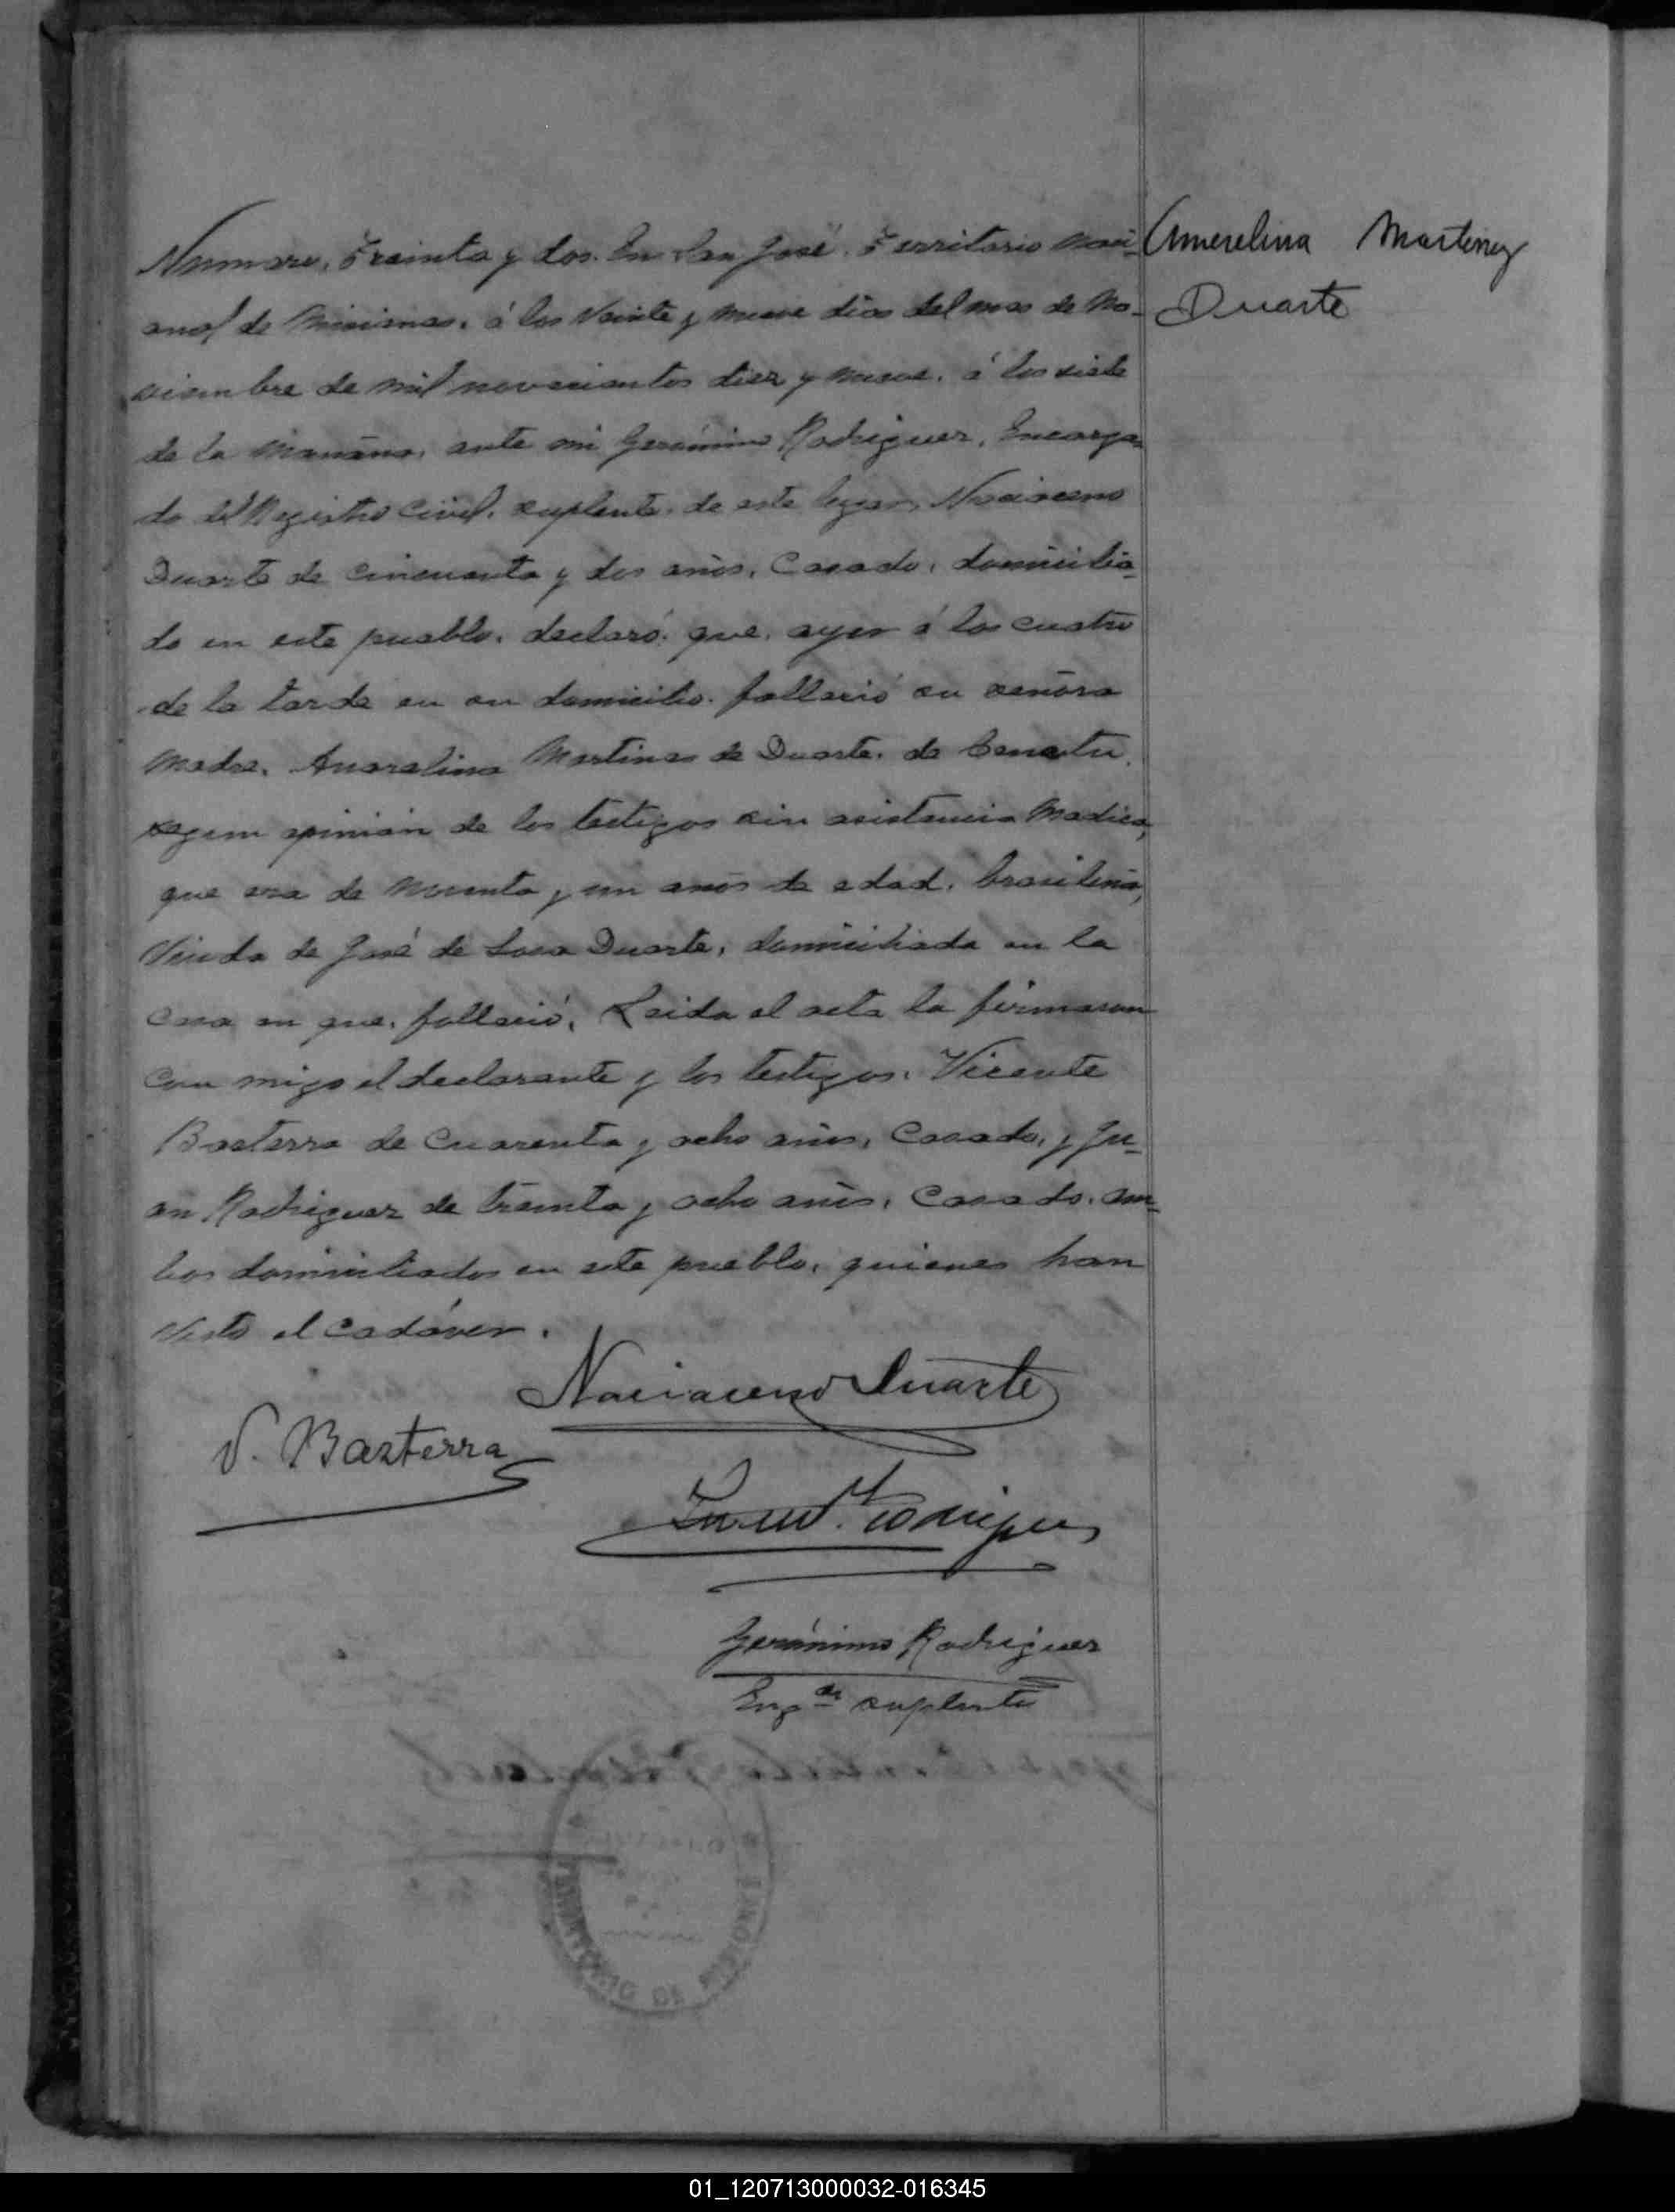 Numero, Treinta y dos. En San José. Territorio Naci-
onal de Misiones, á los Veinte y nueve dias del mes de No-
viembre de mil novecientos diez y nueve, á las siete
de la mañana, ante mi Gerónimo Rodriguez, Encarga-
do del Registro Civil, suplente, de este lugar, Naciaceno
Duarte de cincuenta y dos años, Casado, domicilia-
do en este pueblo, declaró: que, ayer á las cuatro
de la tarde en su domicilio. fallecio su señora
madre, Amarelina Martines de Duarte, de
segun opinion de los testigos sin asistencia Medica,
que era de noventa y un años de edad, brasileña,
Viuda de José de Sosa Duarte, domiciliada en la
casa en que, falleció, Leida el acta la firmaron
con migo el declarante y los testigos, Vicente
Basterra de Cuarenta y ocho años, Casado, y Ju-
an Rodriguez de treinta y ocho años, Casado, am-
bos domiciliados en este pueblo, quienes han
visto el cadáver.
Amerelina Martinez
Duarte
Naciaceno Duarte
V. Bazterra
Juan Rodriguez
Gerónimo Rodriguez
Eng.do suplente
TERRITORIO DE MISIONES
01_120713000032-016345